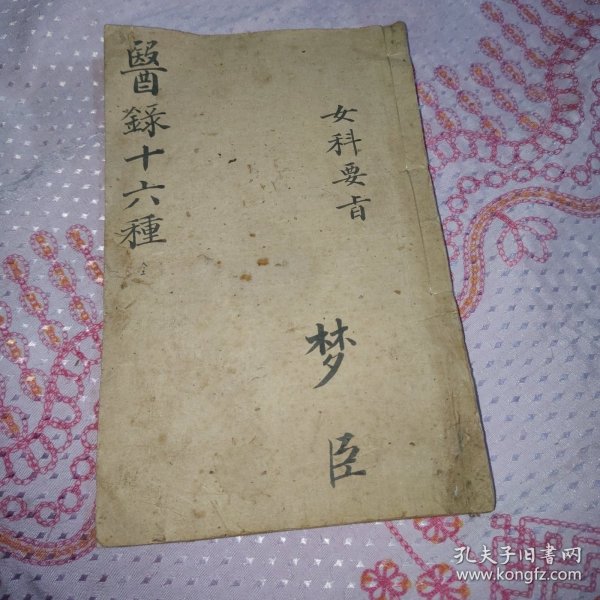 女科要旨
梦臣
醫錄十六種
全
孔夫子旧书网
www.kongfz.com